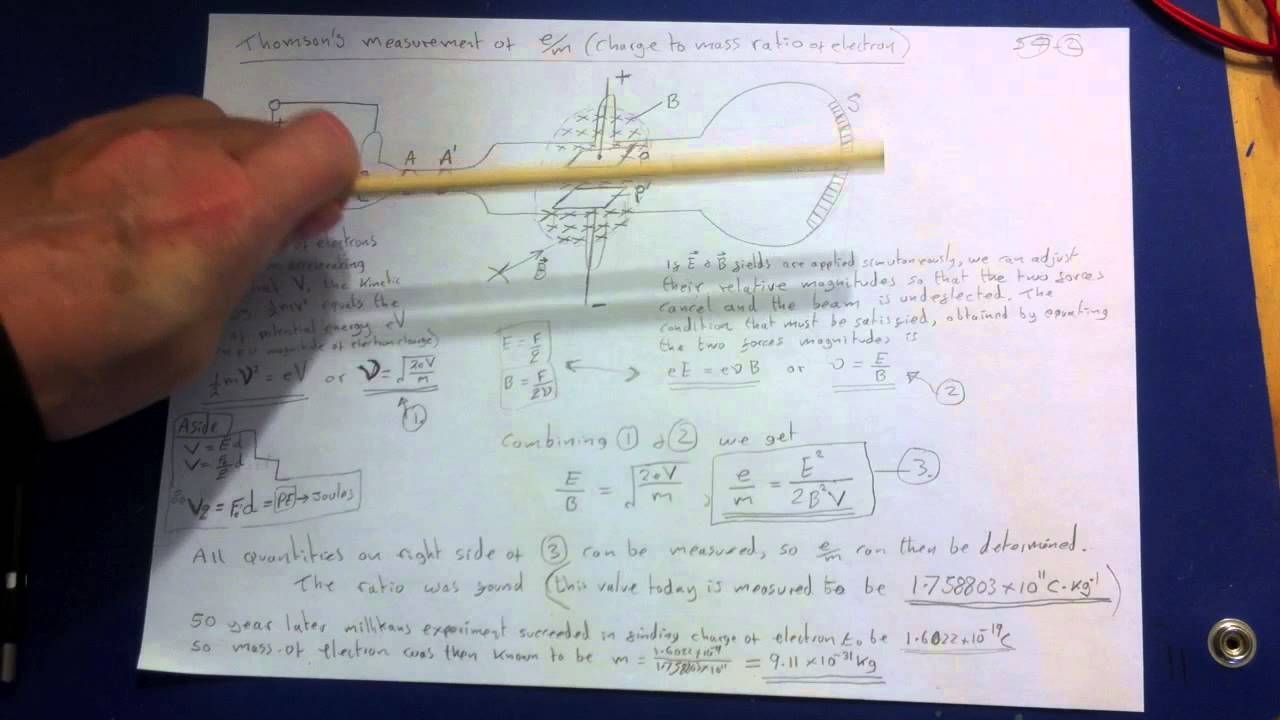 Thomson's measurement of e/m (charge to mass ratio of electron)
54-2
+
B
S
A A'
P'
B
−
of electrons
accelerating
V, the kinetic
½mv² equals the
of potential energy eV
magnitude of electron charge)
½mv² = eV or v = √(2eV/m)
①
E = F/q
B = F/qv
If E & B fields are applied simutaneously, we can adjust
their relative magnitudes so that the two forces
cancel and the beam is undeflected. The
condition that must be satisfied, obtained by equating
the two forces magnitudes is
eE = evB or v = E/B
②
Aside
V = Ed
V = F/q d
so Vq = F.d = PE → Joules
Combining ① & ② we get
E/B = √(2eV/m), e/m = E²/2B²V
③.
All quantities on right side of ③ can be measured, so e/m can then be determined.
The ratio was found (this value today is measured to be 1.758803 × 10¹¹ C.Kg⁻¹)
50 year later millikans experiment succeeded in finding charge of electron to be 1.6022×10⁻¹⁹C
So mass of electron was then known to be m = 1.6022×10⁻¹⁹/1.758803×10¹¹ = 9.11 ×10⁻³¹ Kg